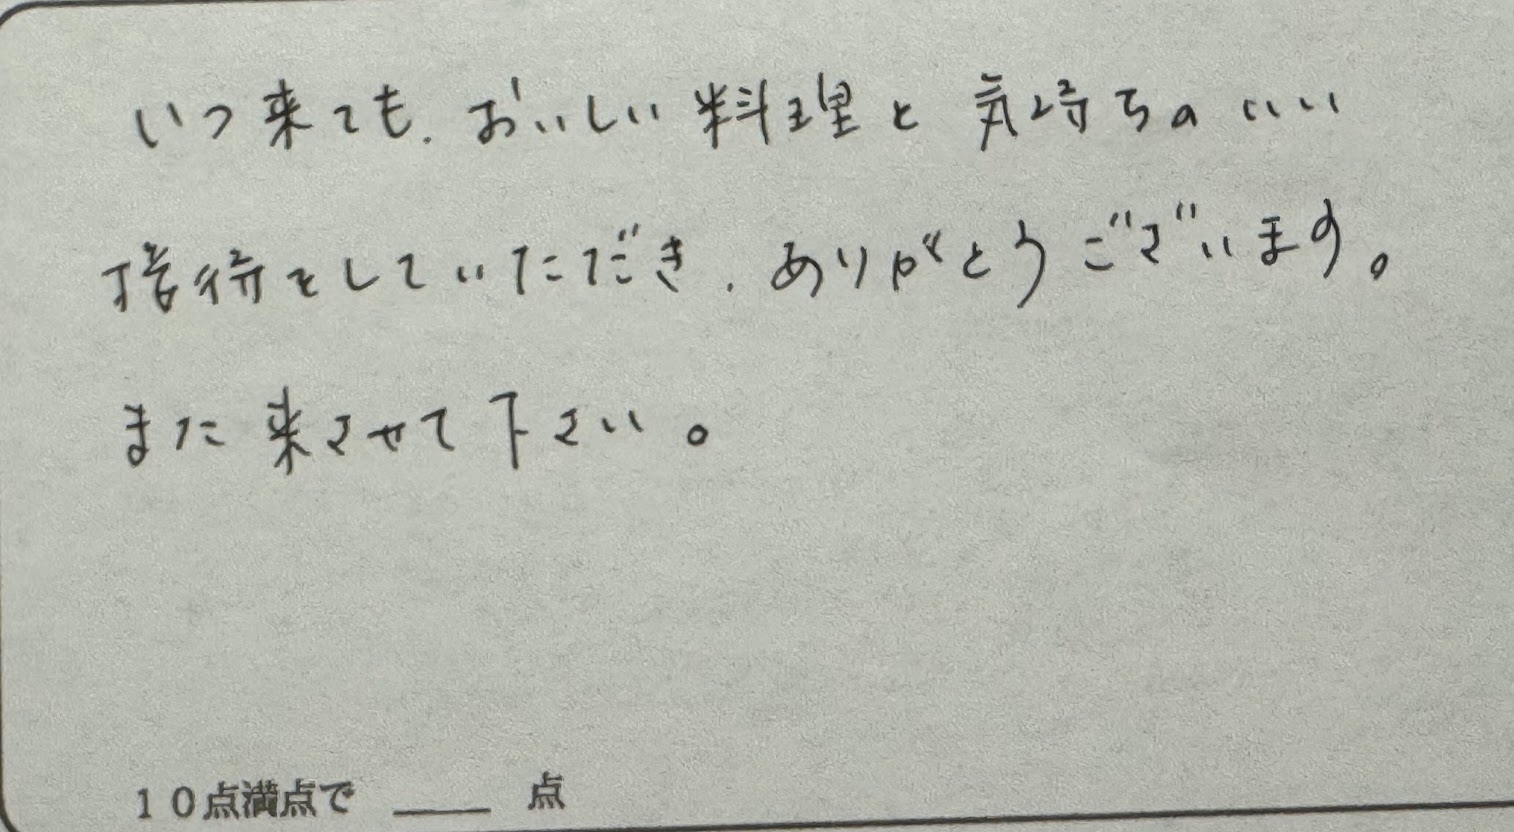 いつ来ても、おいしい料理と気持ちのいい
接待をしていただき、ありがとうございます。
また来させて下さい。
10点満点で ____ 点